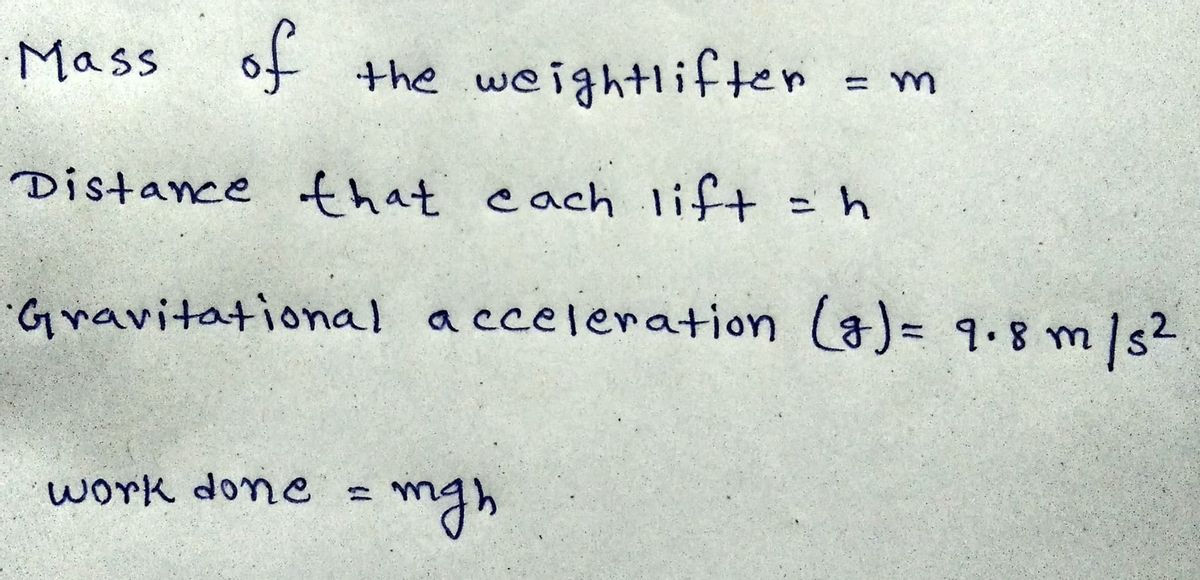 Mass of the weightlifter = m
Distance that each lift = h
Gravitational acceleration (g) = 9.8 m/s²
work done = mgh